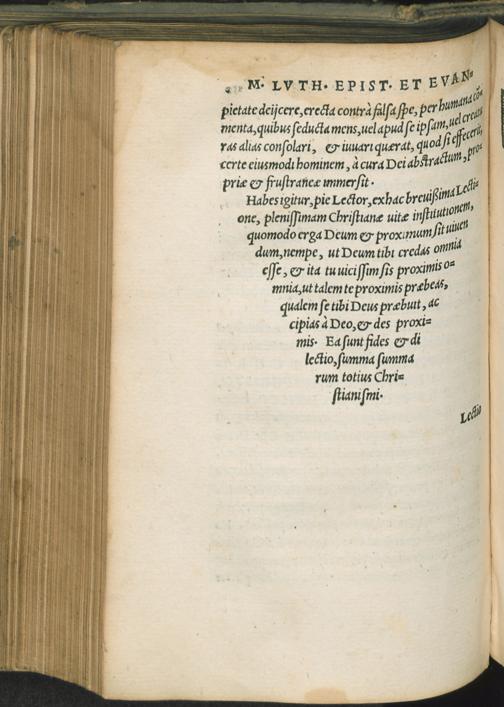 M. LVTH. EPIST. ET EVAN=
pietate deijcere, erecta contrà falsa spe, per humana cõ=
menta, quibus seducta mens, uel apud se ipsam, uel creatu
ras alias consolari, & iuuari quærat, quod si effecerit,
certe eiusmodi hominem, à cura Dei abstractum, pro=
priæ & frustraneæ immersit.
Habes igitur, pie Lector, ex hac breuißima Lecti=
one, plenissimam Christianæ uitæ institutionem,
quomodo erga Deum & proximum sit uiuen
dum, nempe, ut Deum tibi credas omnia
esse, & ita tu uicissim sis proximis o=
mnia, ut talem te proximis præbeas,
qualem se tibi Deus præbuit, ac
cipias à Deo, & des proxi=
mis. Ea sunt fides & di
lectio, summa summa
rum totius Chri=
stianismi.
Lectio